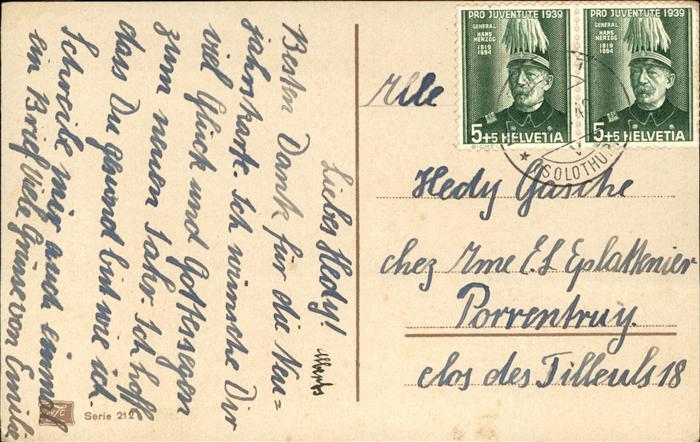 Liebes Hedy!
Besten Dank für die Neu=
jahrskarte. Ich wünsche Dir
viel Glück und Gottessegen
zum neuen Jahr. Ich hoff
dass Du gesund bist wie ich.
Schreibe mir auch einmal
ein Brief Viele Grüsse von Emilie
Serie 212
PRO JUVENTUTE 1939
GENERAL
HANS
HERZOG
1819
1894
5+5 HELVETIA
PRO JUVENTUTE 1939
GENERAL
HANS
HERZOG
1819
1894
5+5 HELVETIA
SOLOTHURN
Mlle
Hedy Gasche
chez Mme E.L Eplattenier
Porrentruy.
clos des Tilleuls 18